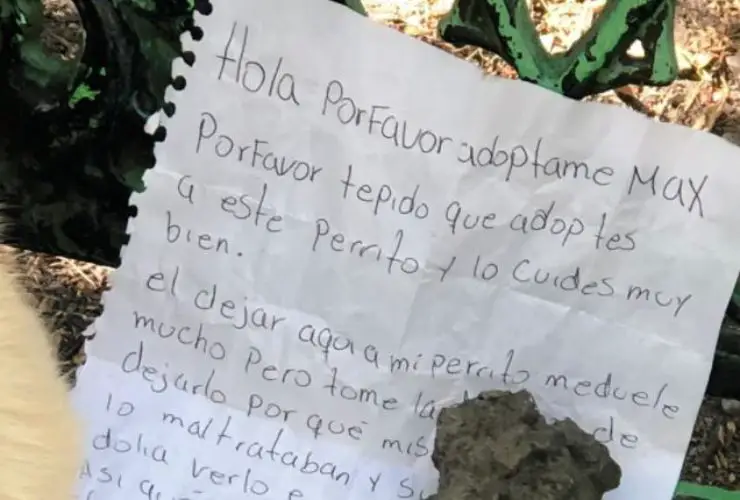 Hola PorFavor adoptame Max
PorFavor tepido que adoptes
a este Perrito y lo cuides muy
bien.
el dejar aqui a mi perrito meduele
mucho Pero tome la de
dejarlo por qué mis
lo maltrataban y su
dolia verlo
Asi